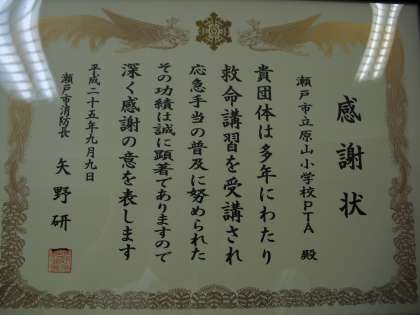 感謝状
瀬戸市立原山小学校PTA 殿
貴団体は多年にわたり
救命講習を受講され
応急手当の普及に努められた
その功績は誠に顕著でありますので
深く感謝の意を表します
平成二十五年九月九日
瀬戸市消防長 矢野研一